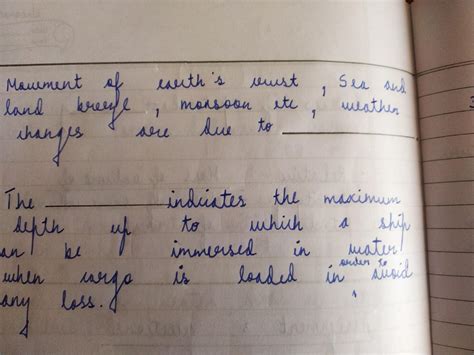 Movement of earth's crust, Sea and
land breeze, monsoon etc, weather
changes are due to ________
The ________ indicates the maximum
depth up to which a ship
can be immersed in water
when cargo is loaded in order to avoid
any loss.